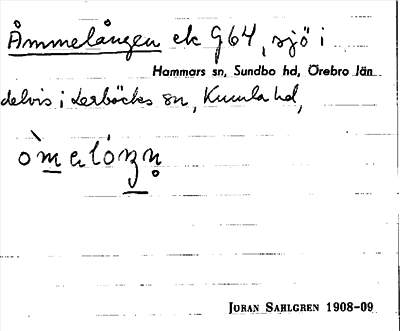 Åmmelången ek 964, sjö i
Hammars sn, Sundbo hd, Örebro län
delvis i Lerbäcks sn, Kumla hd,
JÖRAN SAHLGREN 1908-09